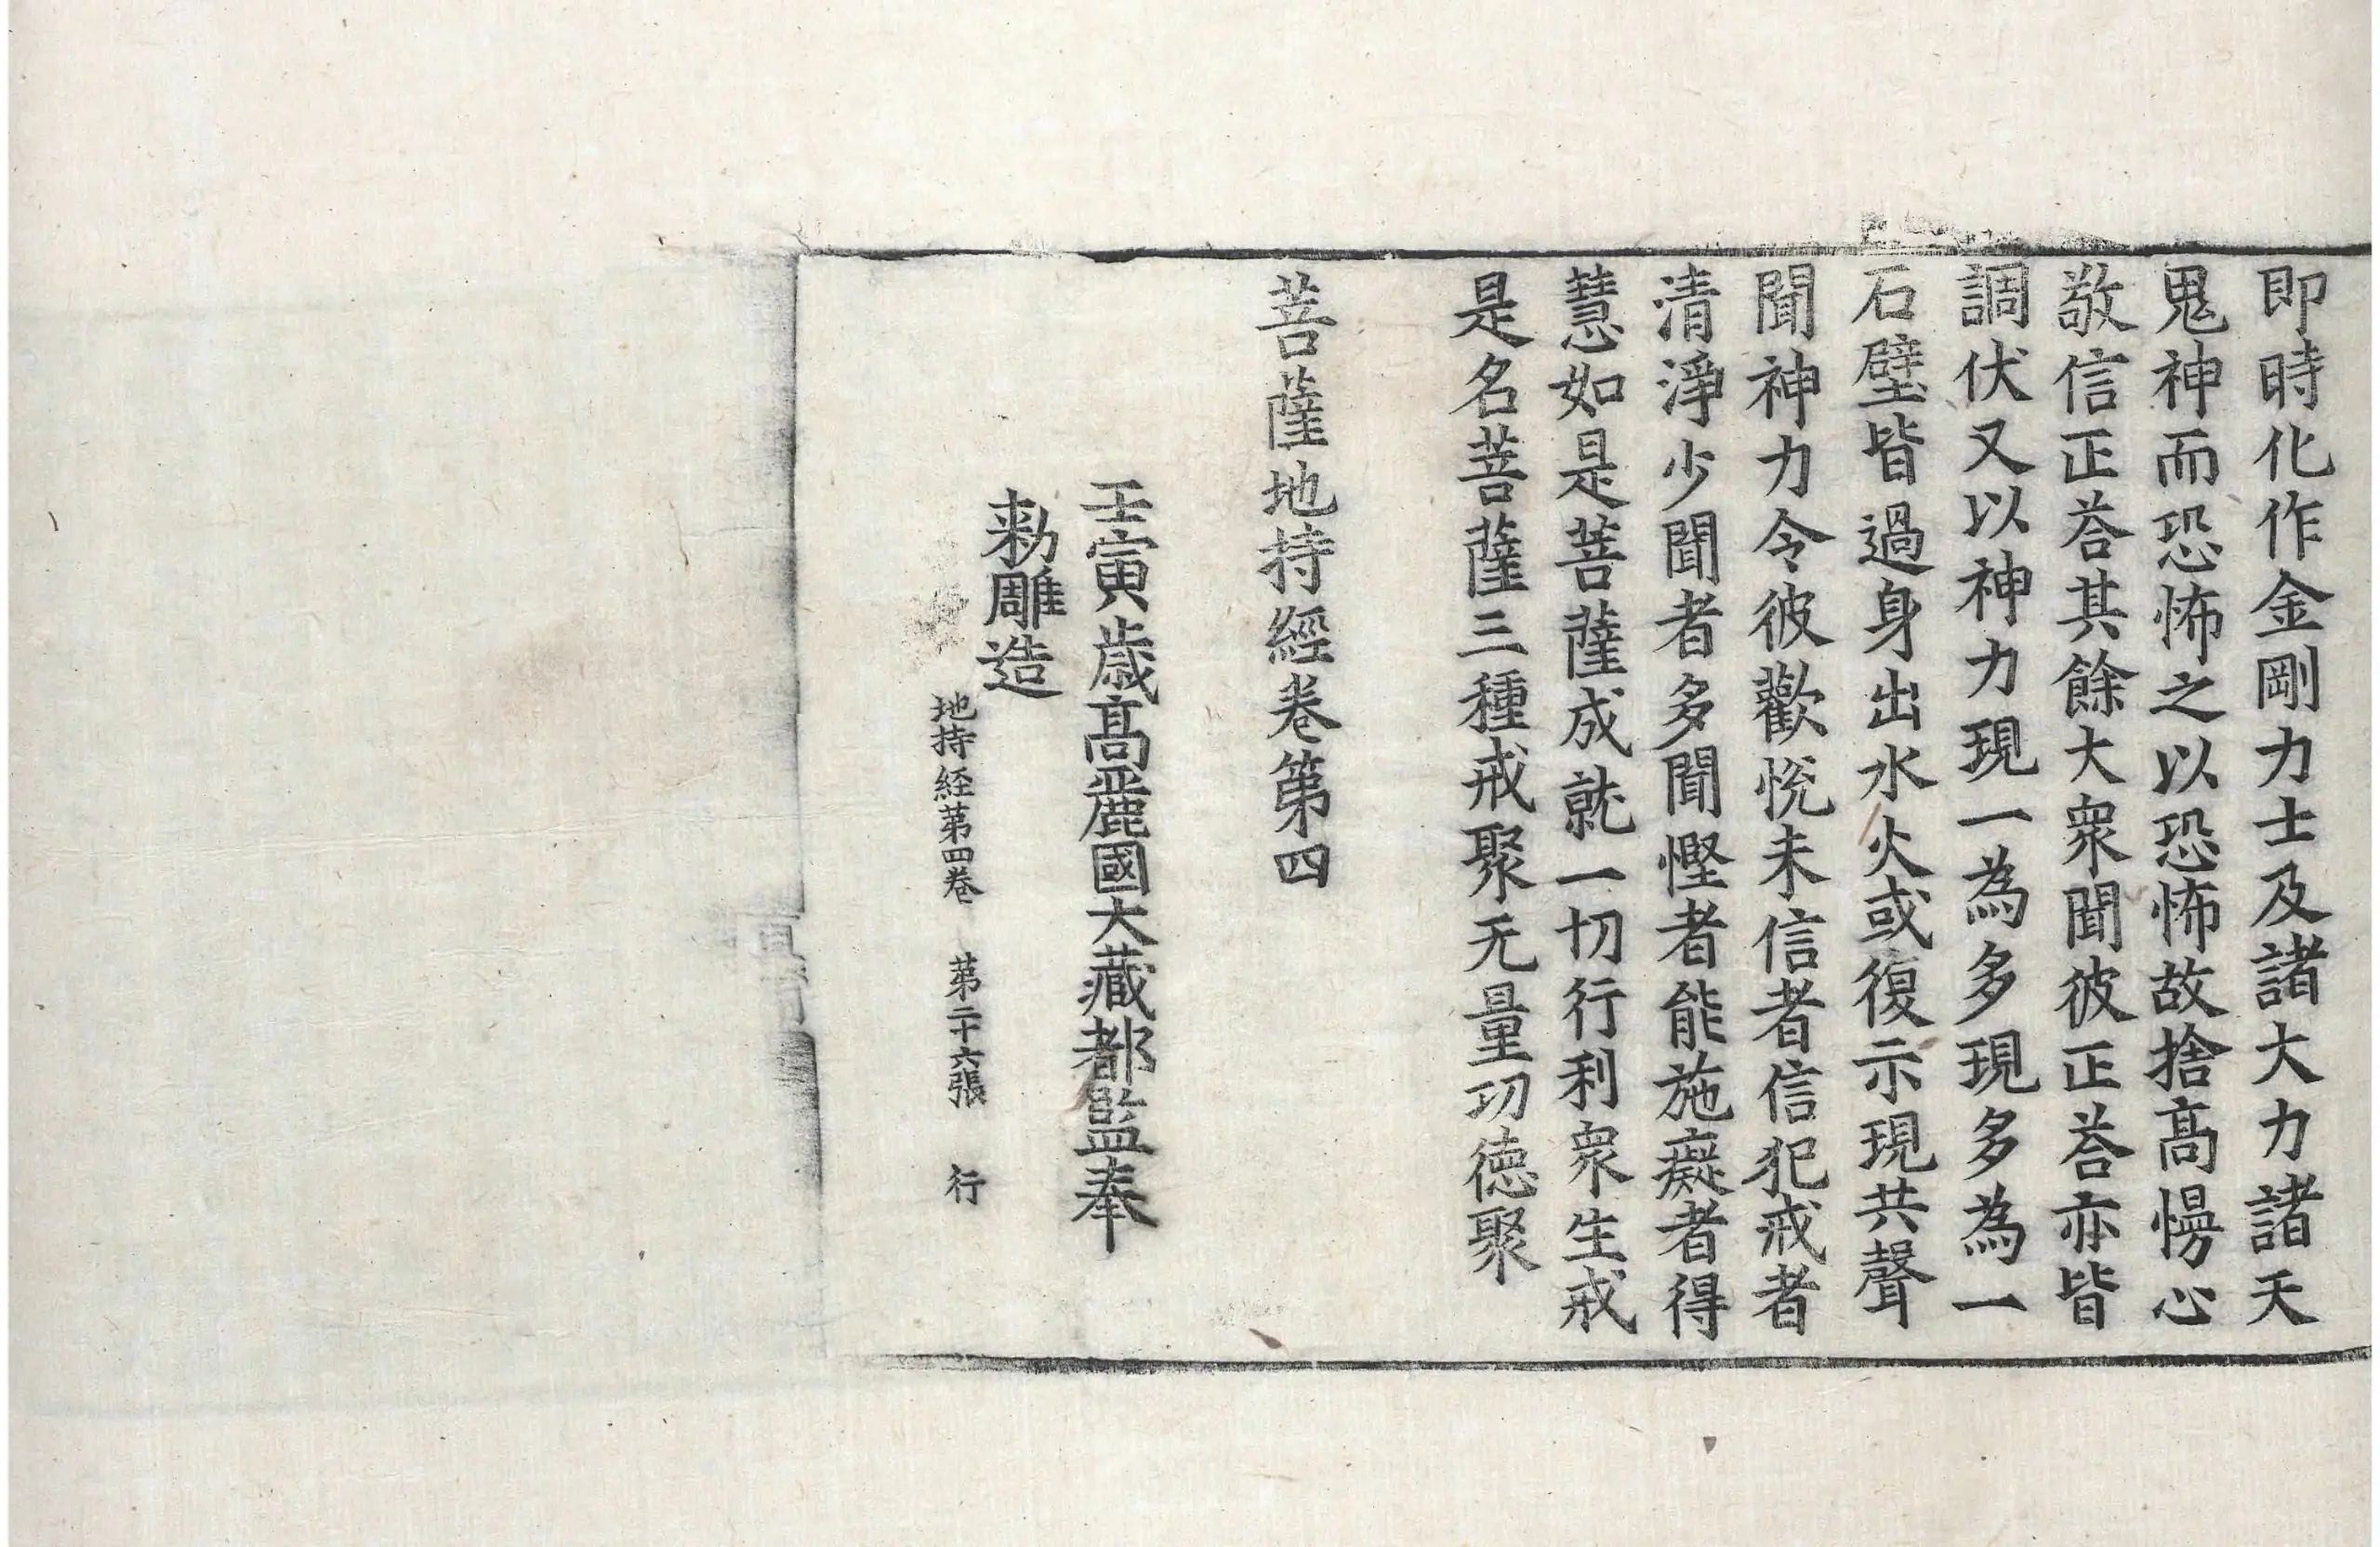 即時化作金剛力士及諸大力諸天
鬼神而恐怖之以恐怖故捨高慢心
敬信正荅其餘大衆聞彼正荅亦皆
調伏又以神力現一為多現多為一
石壁皆過身出水火或復示現共聲
聞神力令彼歡悅未信者信犯戒者
清淨少聞者多聞慳者能施癡者得
慧如是菩薩成就一切行利衆生戒
是名菩薩三種戒聚无量功德聚
菩薩地持經卷第四
壬寅歲高麗國大藏都監奉
勑雕造
地持経苐四卷 苐二十六張 行